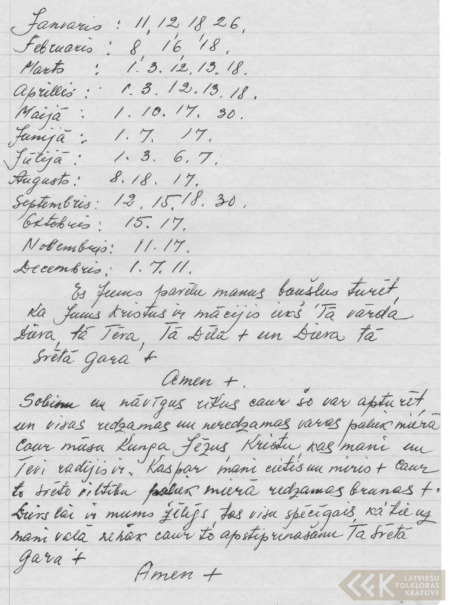 Janvaris : 11, 12, 18 26.
Februaris : 8, 16, 18.
Marts : 1. 3. 12, 13. 18.
Aprillis : 1. 3. 12. 13. 18.
Maijā : 1. 10. 17. 30.
Junijā : 1. 7. 17.
Jūlijā : 1. 3. 6. 7.
Augusts : 8. 18. 17.
Septembris : 12. 15. 18. 30.
Oktobris : 15. 17.
Nobembris : 11. 17.
Decembris : 1. 7. 11.
Es Jums pavēlu manus baušlus turēt,
Ka Jums Kristus ir mācijis iekš Tā vārda
Dieva, tā Tēva, Tā Dēla + un Dieva tā
Svētā Gara +
Amen +.
Sobinu un nāvīgus caur šo var apturēt
un visas redzamas un neredzamas varas paliek mierā
caur mūsu Kunga Jēzus Kristu, kas mani un
Tevi radījis ir. Kaspar mani cietis un miris + caur
to svēto paliek mierā redzamas brunas +
Dievs lai ir mums žēlīgs, tas visu spēcīgais kā tie uz
mani valā nenāk caur to apstiprinašanu Tā Svētā
Gara +
Amen +
LATVIEŠU
FOLKLORAS
KRĀTUVE